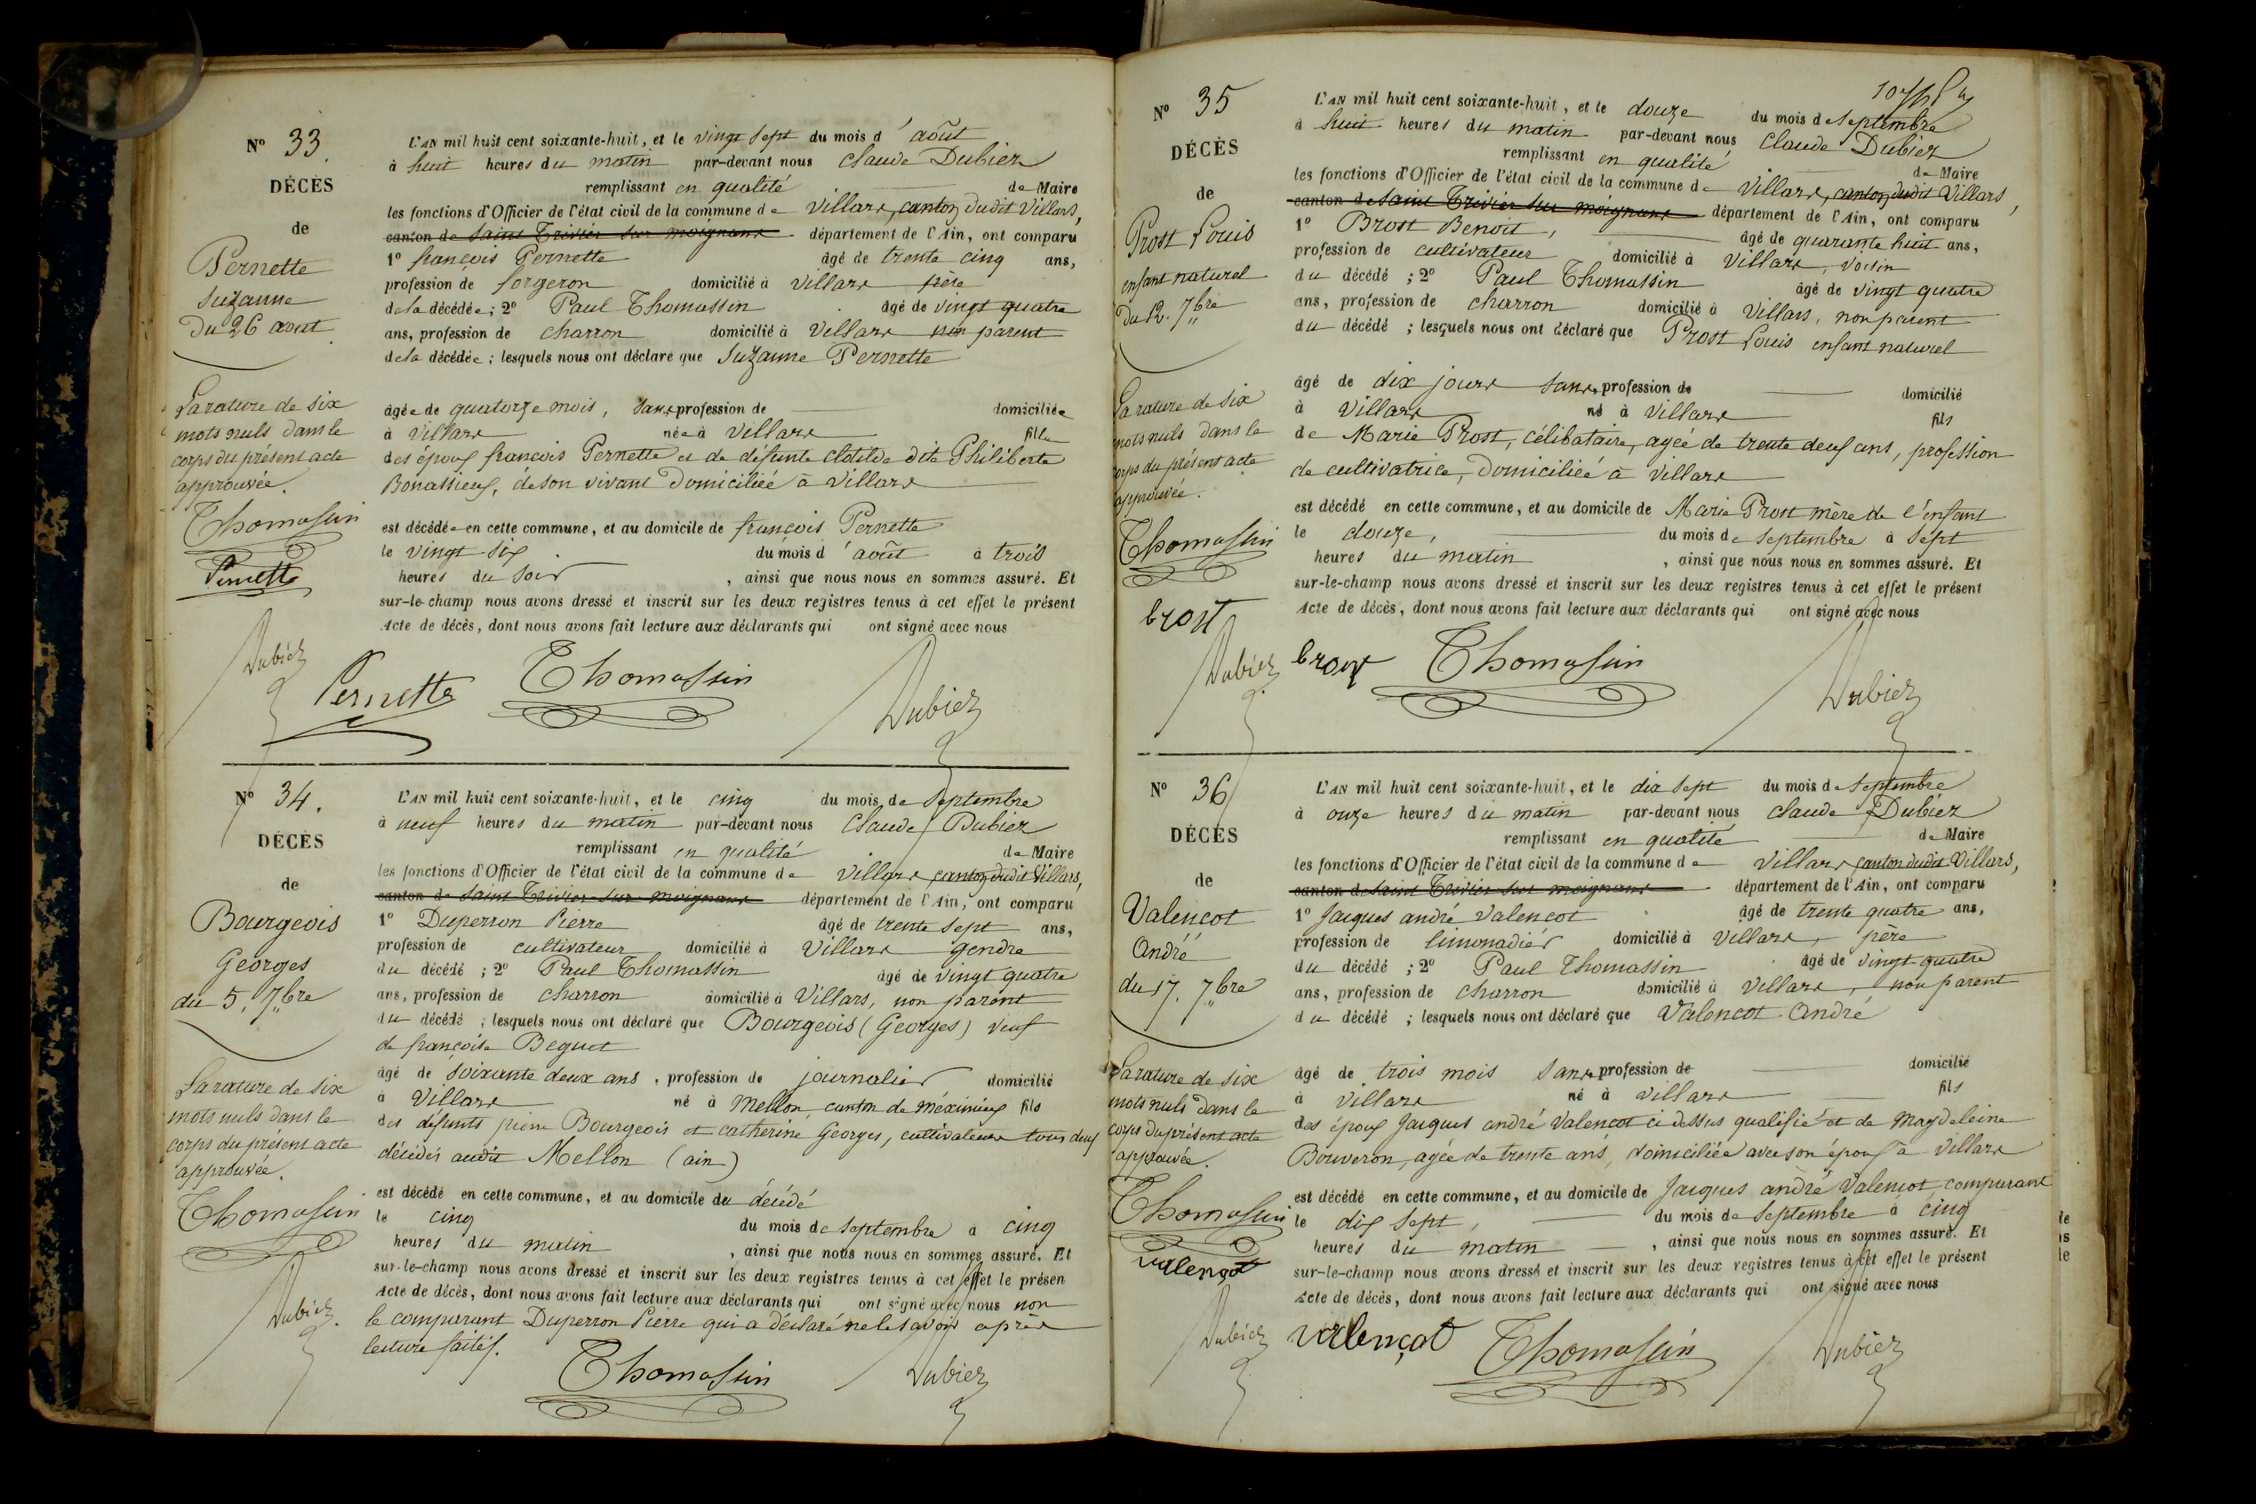 Nº 33.
DÉCÈS
de
Pernette
Suzanne
Du 26 aout
La rature de six
mots nuls dans le
corps du présent acte
approuvée.
Thomassin
Pernette
Dubiez
L'AN mil huit cent soixante-huit, et le vingt sept du mois d'août
à huit heures du matin par-devant nous Claude Dubiez
remplissant en qualité de Maire
les fonctions d'Officier de l'état civil de la commune de Villars, canton dudit Villars,
canton de Saint Trivier sur moignans département de l'Ain, ont comparu
1º françois Pernette âgé de trente cinq ans,
profession de forgeron domicilié à Villars père
de la décédée ; 2º Paul Thomassin âgé de vingt quatre
ans, profession de charron domicilié à Villars non parent
de la décédée ; lesquels nous ont déclaré que Suzanne Pernette
âgée de quatorze mois, sans profession de domiciliée
à Villars née à Villars fille
des époux françois Pernette et de défunte Clotilde dite Philiberte
Bonassieux, de son vivant domiciliée à Villars
est décédée en cette commune, et au domicile de françois Pernette
le vingt six du mois d'août à trois
heures du soir, ainsi que nous nous en sommes assuré. Et
sur-le-champ nous avons dressé et inscrit sur les deux registres tenus à cet effet le présent
Acte de décès, dont nous avons fait lecture aux déclarants qui ont signé avec nous
Pernette Thomassin Dubiez
Nº 34.
DÉCÈS
de
Bourgeois
Georges
du 5. 7bre
La rature de six
mots nuls dans le
corps du présent acte
approuvée.
Thomassin
Dubiez
L'AN mil huit cent soixante-huit, et le cinq du mois de Septembre
à neuf heures du matin par-devant nous Claude Dubiez
remplissant en qualité de Maire
les fonctions d'Officier de l'état civil de la commune de Villars canton dudit Villars,
canton de Saint Trivier sur moignans département de l'Ain, ont comparu
1º Duperron Pierre âgé de trente sept ans,
profession de cultivateur domicilié à Villars gendre
du décédé ; 2º Paul Thomassin âgé de vingt quatre
ans, profession de charron domicilié à Villars, non parent
du décédé ; lesquels nous ont déclaré que Bourgeois (Georges) veuf
de françoise Beguet
âgé de soixante deux ans, profession de journalier domicilié
à Villars né à Mellon, canton de méximieux fils
des défunts pierre Bourgeois et catherine Georges, cultivateurs tous deux
décédés audit Mellon (ain)
est décédé en cette commune, et au domicile du décédé
le cinq du mois de septembre à cinq
heures du matin, ainsi que nous nous en sommes assuré. Et
sur-le-champ nous avons dressé et inscrit sur les deux registres tenus à cet effet le présen
Acte de décès, dont nous avons fait lecture aux déclarants qui ont signé avec nous non
le comparant Duperron Pierre qui a déclaré ne le savoir après
lecture faite.
Thomassin Dubiez
Nº 35
DÉCÈS
de
Prost Louis
enfant naturel
Du 12. 7bre
La rature de six
mots nuls dans le
corps du présent acte
approuvée.
Thomassin
brost
Dubiez
L'AN mil huit cent soixante-huit, et le douze du mois de Septembre
à huit heures du matin par-devant nous Claude Dubiez
remplissant en qualité de Maire
les fonctions d'Officier de l'état civil de la commune de Villars, canton dudit Villars,
canton de Saint Trivier sur moignans département de l'Ain, ont comparu
1º Brost Benoit, âgé de quarante huit ans,
profession de cultivateur domicilié à Villars, voisin
du décédé ; 2º Paul Thomassin âgé de vingt quatre
ans, profession de charron domicilié à Villars, non parent
du décédé ; lesquels nous ont déclaré que Prost Louis enfant naturel
âgé de dix jours sans profession de domicilié
à Villars né à Villars fils
de Marie Prost, célibataire, agée de trente deux ans, profession
de cultivatrice, domiciliée à Villars
est décédé en cette commune, et au domicile de Marie Prost mère de l'enfant
le douze, du mois de Septembre à sept
heures du matin, ainsi que nous nous en sommes assuré. Et
sur-le-champ nous avons dressé et inscrit sur les deux registres tenus à cet effet le présent
Acte de décès, dont nous avons fait lecture aux déclarants qui ont signé avec nous
brost Thomassin Dubiez
Nº 36
DÉCÈS
de
Valencot
André
du 17. 7bre
La rature de six
mots nuls dans le
corps du présent acte
approuvée.
Thomassin
valençot
Dubiez
L'AN mil huit cent soixante-huit, et le dix sept du mois de Septembre
à onze heures du matin par-devant nous Claude Dubiez
remplissant en qualité de Maire
les fonctions d'Officier de l'état civil de la commune de Villars canton dudit Villars,
canton de Saint Trivier sur moignans département de l'Ain, ont comparu
1º Jacques andré Valencot âgé de trente quatre ans,
profession de limonadier domicilié à Villars, père
du décédé ; 2º Paul Thomassin âgé de vingt quatre
ans, profession de charron domicilié à Villars, non parent
du décédé ; lesquels nous ont déclaré que Valencot André
âgé de trois mois sans profession de domicilié
à Villars né à Villars fils
des époux Jacques andré Valencot ci dessus qualifié et de Magdeleine
Bouveron, agée de trente ans, domiciliée avec son époux à Villars
est décédé en cette commune, et au domicile de Jacques andré Valencot comparant
le dix sept, du mois de Septembre à cinq
heures du matin, ainsi que nous nous en sommes assuré. Et
sur-le-champ nous avons dressé et inscrit sur les deux registres tenus à cet effet le présent
Acte de décès, dont nous avons fait lecture aux déclarants qui ont signé avec nous
valençot Thomassin Dubiez